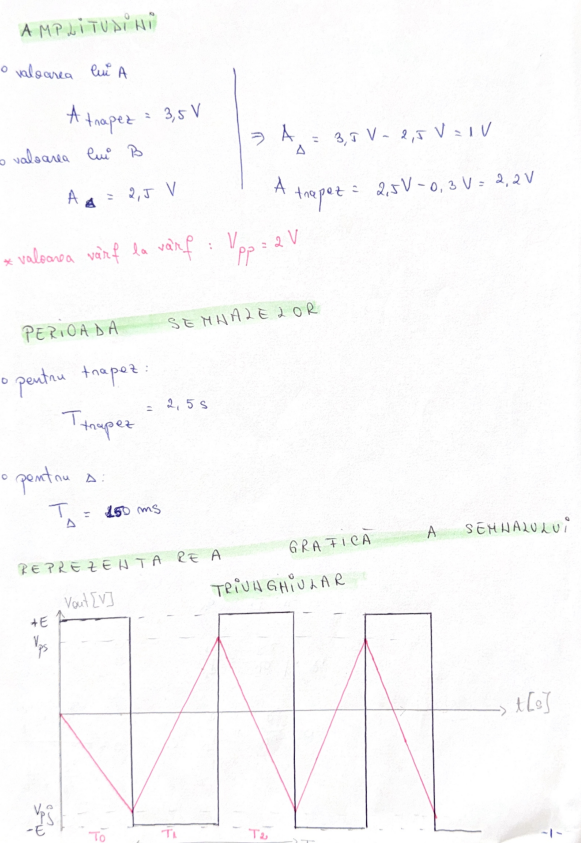 AMPLITUDINI
o valoarea lui A
A trapez = 3,5 V
o valoarea lui B
A Δ = 2,5 V
⇒ A Δ = 3,5 V - 2,5 V = 1 V
A trapez = 2,5V - 0,3 V = 2,2V
* valoarea vârf la vârf : Vpp = 2 V
PERIOADA SEMNALELOR
o pentru trapez:
T trapez = 2,5 s
o pentru Δ:
T Δ = 150 ms
REPREZENTAREA GRAFICĂ A SEMNALULUI
TRIUNGHIULAR
Vout [V]
+E
Vps
t[s]
Vpj
-E
T0 T1 T2
-1-